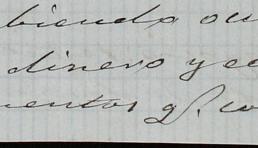 biendo ou
dinero y ec
mentos q.